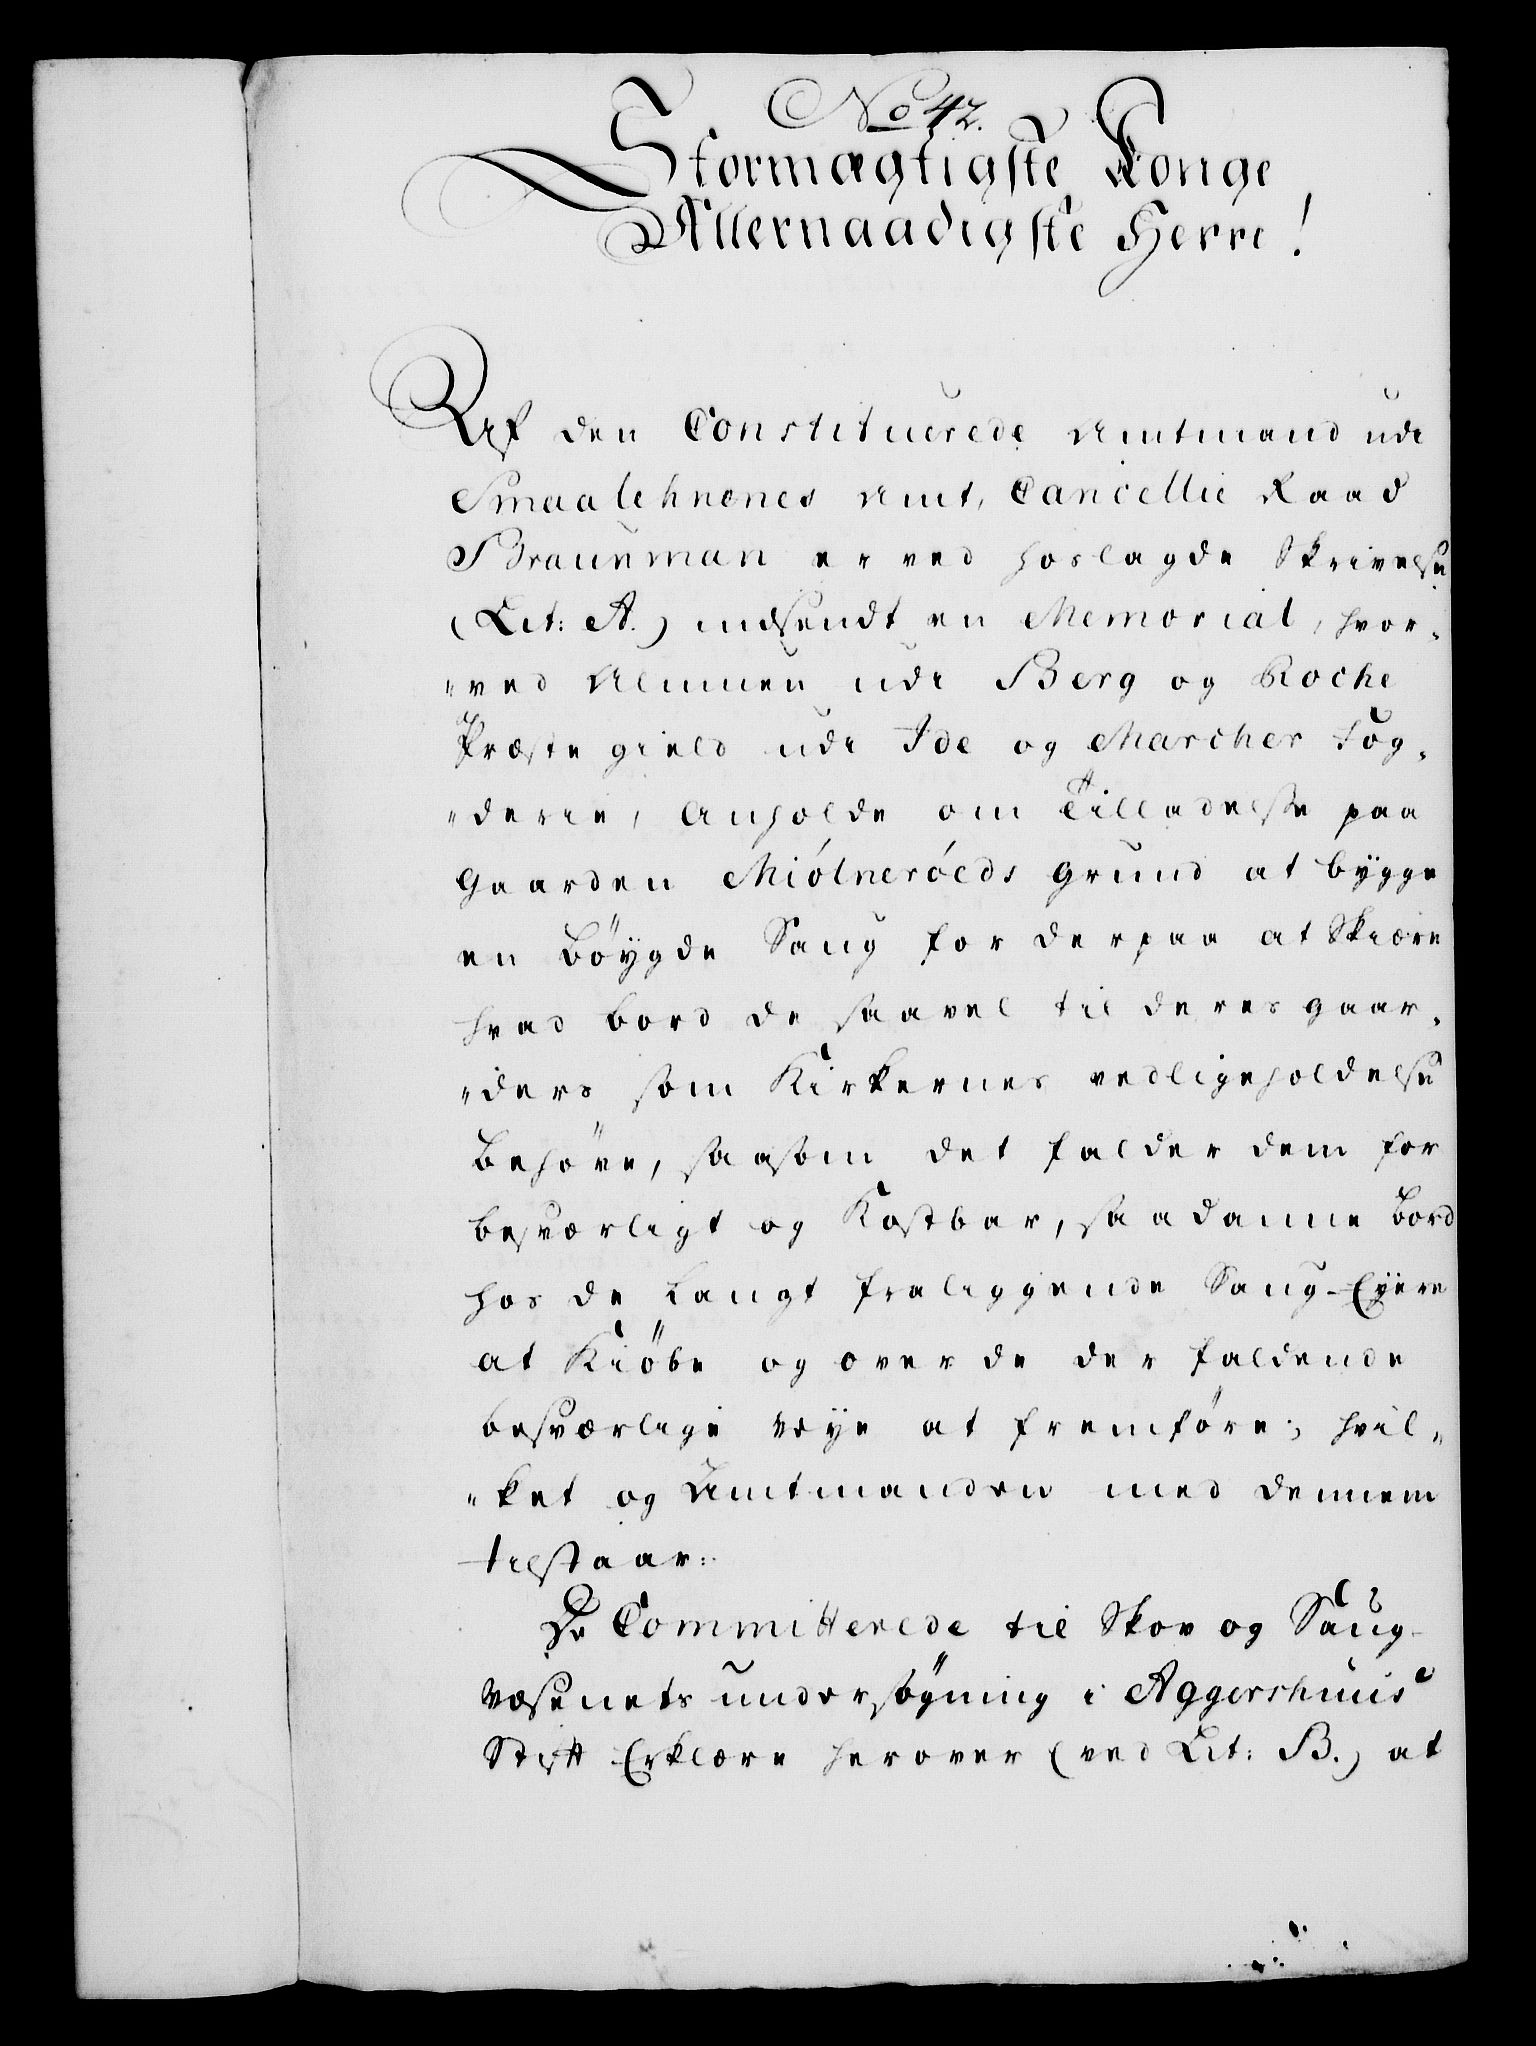 No 42.
Stormægtigste Konge
Allernaadigste Herre!
Af den Constituerede Amtmand udi
Smaalehnenes Amt, Cancellie Raad
Braunman er ved hoslagde Skrivelse
(Lit: A.) indsendt en Memorial, hvor„
„ved Almuen udi Berg og Rocke
Præste gield udi Ide og Marcker Fog„
„derie, Anholde om Tilladelse paa
Gaarden Miólneróeds grund at bygge
en Böygde Saug for derpaa at Skiære
hvad bord de saavel til deres gaar„
„ders som Kirkernes vedligeholdelse
Behöve, saasom det falder dem for
besværligt og Kostbar, saadanne Bord
hos de Langt fraliggende Saug-Eyere
at Kiöbe og over de der faldende
besværlige Veye at fremföre; hvil„
„ket og Amtmanden med dennem
tilstaar.
De Committerede til Skov og Saug-
væsenets undersögning i Aggershuus
Stift Erklære herover (ved Lit: B.) at